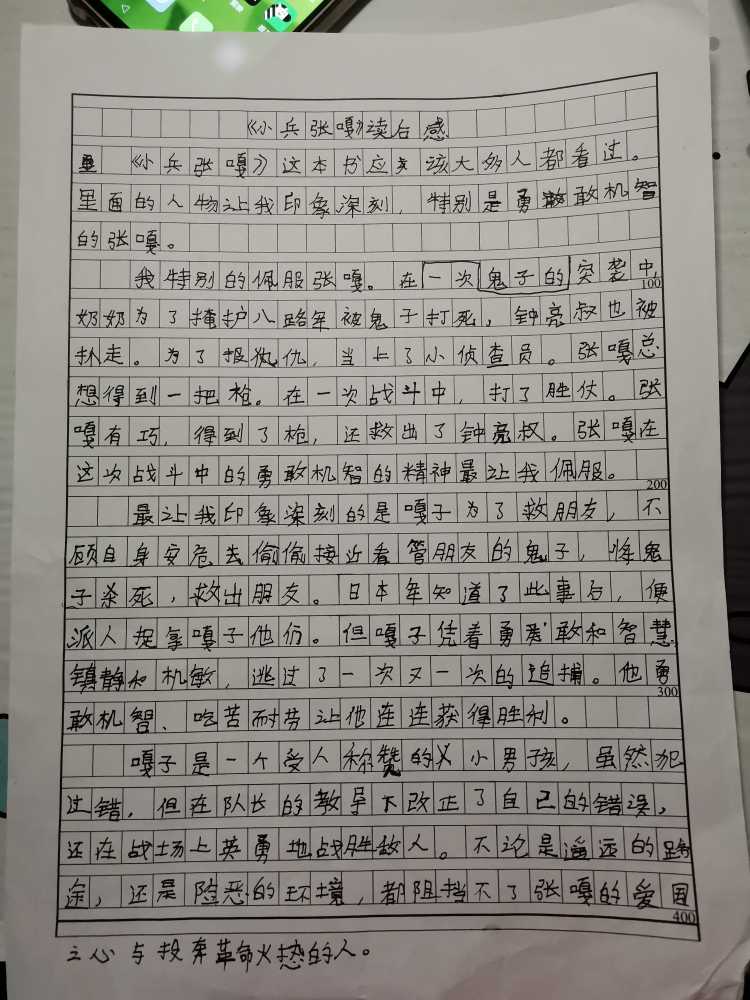 《小兵张嘎》读后感
《小兵张嘎》这本书应该大多人都看过。
里面的人物让我印象深刻，特别是勇敢机智
的张嘎。
我特别的佩服张嘎。在一次鬼子的突袭中，
100
奶奶为了掩护八路军被鬼子打死，钟亮叔也被
扒走。为了报仇，当上了小侦查员。张嘎总
想得到一把枪。在一次战斗中，打了胜仗。张
嘎有巧，得到了枪，还救出了钟亮叔。张嘎在
这次战斗中的勇敢机智的精神最让我佩服。
200
最让我印象深刻的是嘎子为了救朋友，不
顾自身安危去偷偷接近看管朋友的鬼子，将鬼
子杀死，救出朋友。日本军知道了此事后，便
派人捉拿嘎子他们。但嘎子凭着勇敢和智慧，
镇静和机敏，逃过了一次又一次的追捕。他勇
300
敢机智、吃苦耐劳让他连连获得胜利。
嘎子是一个受人称赞的小男孩，虽然犯
过错，但在队长的教导下改正了自己的错误，
还在战场上英勇地战胜敌人。不论是遥远的路
途，还是险恶的环境，都阻挡不了张嘎的爱国
400
之心与投奔革命火热的人。